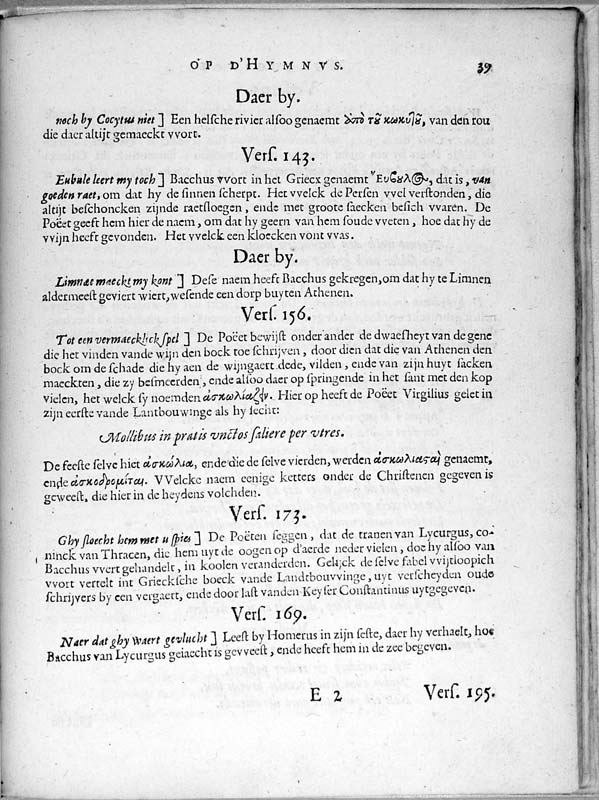 OP D'HYMNVS. 39
Daer by.
noch by Cocytus niet ] Een helſche rivier alſoo genaemt ἀπὸ τοῦ κωκυτοῦ, van den rou
die daer altijt gemaeckt vvort.
Verſ. 143.
Eubule leert my toch ] Bacchus vvort in het Griecx genaemt Ἐυβουλος, dat is, van
goeden raet, om dat hy de ſinnen ſcherpt. Het vvelck de Perſen vvel verſtonden, die
altijt beſchoncken zijnde raetſloegen, ende met groote ſaecken beſich vvaren. De
Poëet geeft hem hier de naem, om dat hy geern van hem ſoude vveten, hoe dat hy de
vvijn heeft gevonden. Het vvelck een kloecken vont vvas.
Daer by.
Limnæ maeckt my kont ] Deſe naem heeft Bacchus gekregen, om dat hy te Limnen
aldermeeſt geviert wiert, weſende een dorp buyten Athenen.
Verſ. 156.
Tot een vermaecklick ſpel ] De Poëet bewijſt onder ander de dwaeſheyt van de gene
die het vinden vande wijn den bock toe ſchrijven, door dien dat die van Athenen den
bock om de ſchade die hy aen de wijngaert dede, vilden, ende van zijn huyt ſacken
maeckten, die zy beſmeerden, ende alſoo daer op ſpringende in het ſant met den kop
vielen, het welck ſy noemden ἀσκωλιάζειν. Hier op heeft de Poëet Virgilius gelet in
zijn eerſte vande Lantbouwinge als hy ſecht:
Mollibus in pratis unctos ſaliere per utres.
De feeſte ſelve hiet ἀσκώλια, ende die de ſelve vierden, werden ἀσκωλιασταὶ genaemt,
ende ἀσκοδρομίται. VVelcke naem eenige ketters onder de Chriſtenen gegeven is
geweeſt, die hier in de heydens volchden.
Verſ. 173.
Ghy ſloecht hem met u ſpies ] De Poëten ſeggen, dat de tranen van Lycurgus, co-
ninck van Thracen, die hem uyt de oogen op d'aerde neder vielen, doe hy alſoo van
Bacchus vvert gehandelt, in koolen veranderden. Gelijck de ſelve fabel vvijtloopich
vvort vertelt int Grieckſche boeck vande Landtbouvvinge, uyt verſcheyden oude
ſchrijvers by een vergaert, ende door laſt vanden Keyſer Conſtantinus uytgegeven.
Verſ. 169.
Naer dat ghy waert gevlucht ] Leeſt by Homerus in zijn ſeſte, daer hy verhaelt, hoe
Bacchus van Lycurgus geiaecht is gevveeſt, ende heeft hem in de zee begeven.
E 2 Verſ. 195.